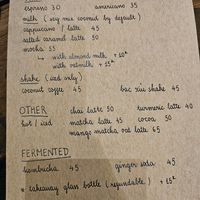 espresso 30 americano 35
milk (soy mix coconut by default)
cappuccino / latte 45
salted caramel latte 50
mocha 55
↳ with almond milk + 10k
with oatmilk + 15k
shake (iced only)
coconut coffee 45 bạc xỉu shake 45
OTHER chai latte 50 turmeric latte 40
hot / iced matcha latte 45 cocoa 50
mango matcha oat latte 65
FERMENTED
kombucha 45 ginger soda 45
* takeaway glass bottle (refundable) + 15k